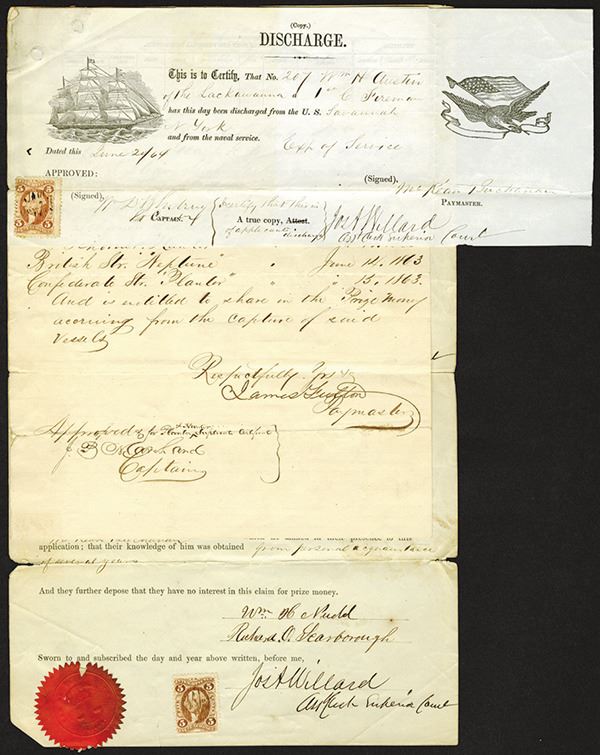 (Copy.)
DISCHARGE.
This is to Certify, That No. 207 Wm H Austin
of the Lackawanna a 1st C Fireman
has this day been discharged from the U. S. Savannah
York
and from the naval service. Exp of Service
Dated this June 24/64
APPROVED:
(Signed), McKean Buchanan
PAYMASTER.
(Signed),
CAPTAIN.
I certify that this is
A true copy, Attest.
of applicants discharge
Jos A Willard
Asst Clerk Superior Court
British Str. "Neptune" " June 14. 1863
Confederate Str. "Planter" " " 15. 1863.
And is entitled to share in the Prize Money
accruing from the capture of said
Vessels
Respectfully
James
Paymaster
Approved
J. B Marchand
Captain
application; that their knowledge of him was obtained from personal acquaintance
of several years
And they further depose that they have no interest in this claim for prize money.
Wm H Nudd
Richard O. Scarborough
Sworn to and subscribed the day and year above written, before me,
Jos A Willard
Asst Clerk Superior Court
5 5